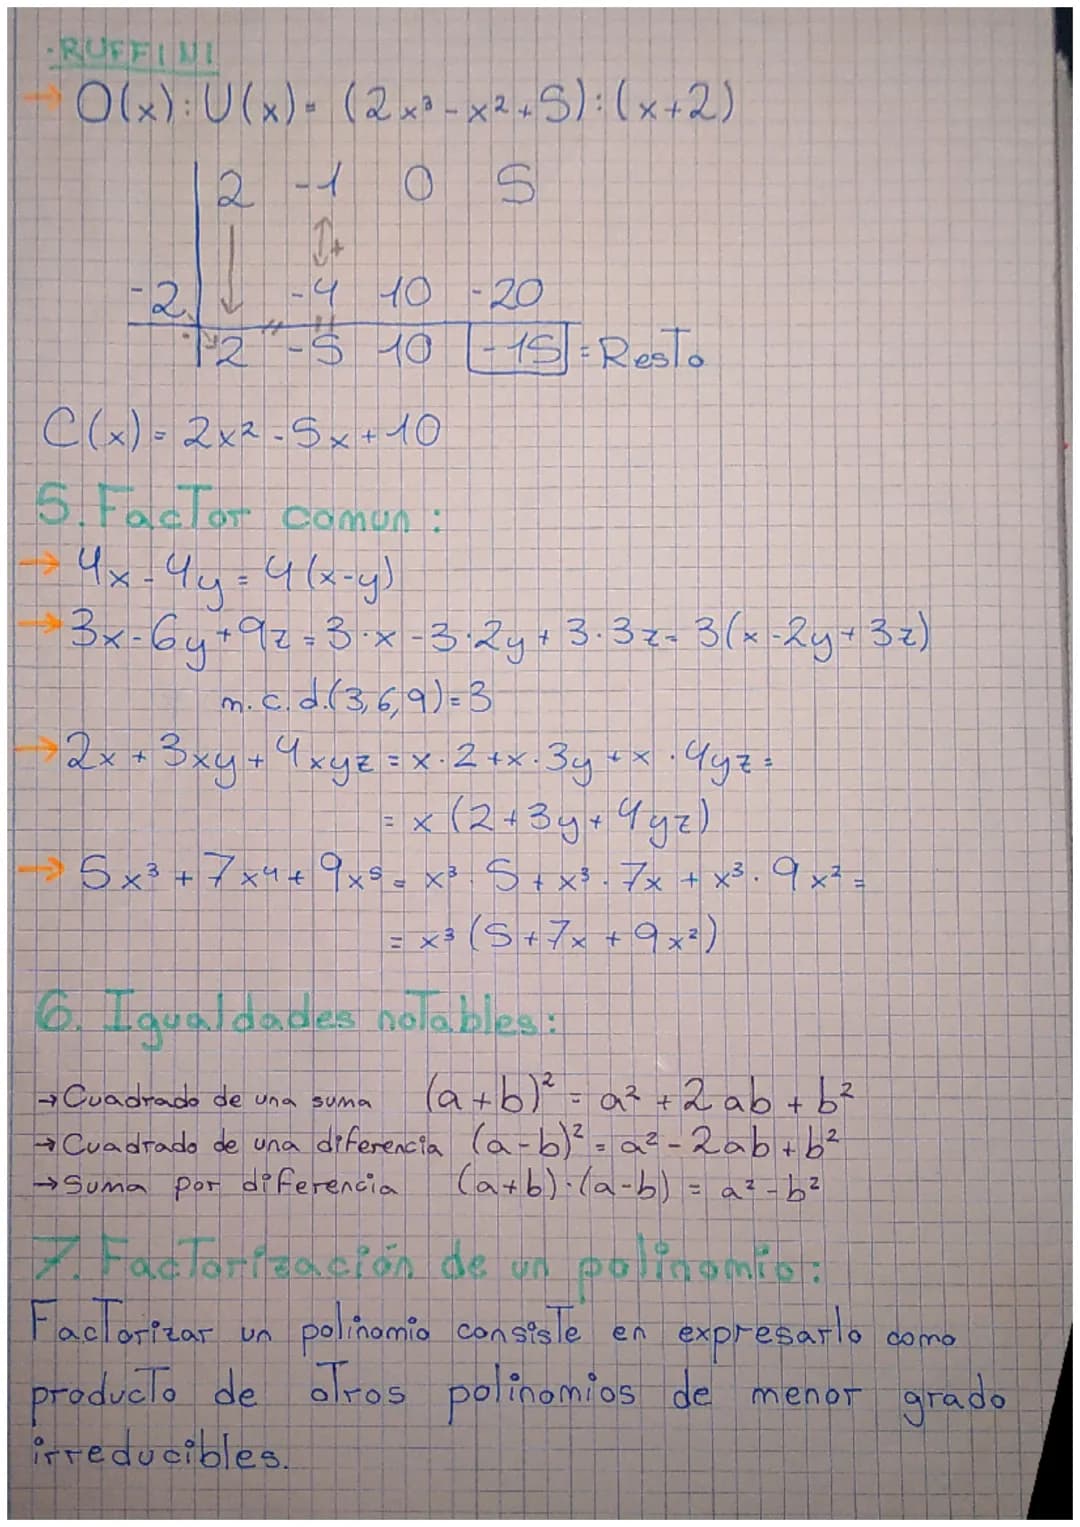 · RUFFINI
→ O(x):U(x)= (2x³-x²+5):(x+2)
2 -1 0 5
↓ ↕+
-2 -4 10 -20
2 -5 10 -15 = Resto
C(x)= 2x²-5x+10
5. Factor comun:
→ 4x-4y=4(x-y)
→ 3x-6y+9z=3·x-3·2y+3·3z=3(x-2y+3z)
m.c.d.(3,6,9)=3
→ 2x+3xy+4xyz=x·2+x·3y+x·4yz=
= x(2+3y+4yz)
→ 5x³+7x⁴+9x⁵= x³·5+x³·7x+x³·9x²=
= x³(5+7x+9x²)
6. Igualdades notables:
→ Cuadrado de una suma (a+b)² = a²+2ab+b²
→ Cuadrado de una diferencia (a-b)² = a²-2ab+b²
→ Suma por diferencia (a+b)·(a-b) = a²-b²
7. Factorización de un polinomio:
Factorizar un polinomio consiste en expresarlo como
producto de otros polinomios de menor grado
irreducibles.